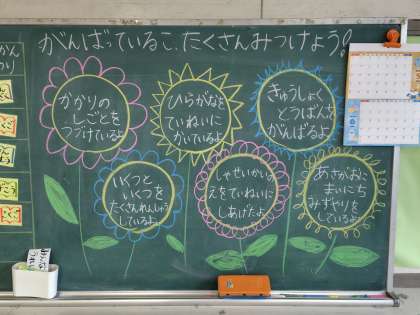 がんばっているこ、たくさんみつけよう!
かかりの
しごとを
つづけているよ
ひらがなを
ていねいに
かいているよ
きゅうしょく
とうばんを
がんばるよ
いくつと
いくつを
たくさんれんしゅう
しているよ
しゃせいかいの
えをていねいに
しあげたよ
あさがおに
まいにち
みずやりを
しているよ